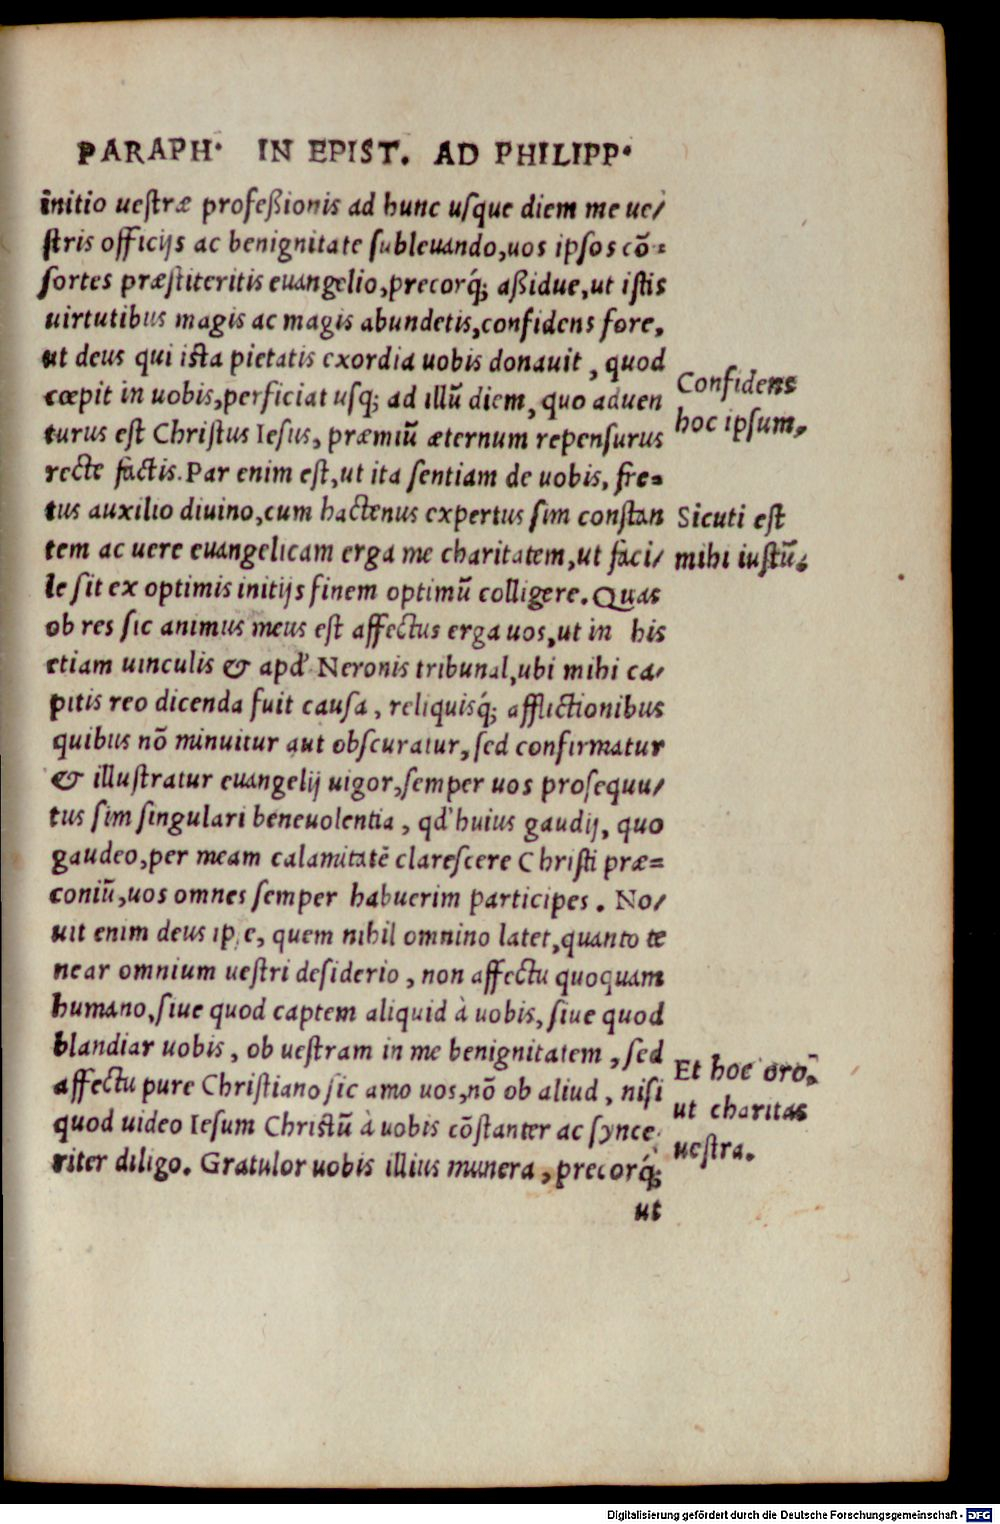 PARAPH. IN EPIST. AD PHILIPP.
initio uestræ profeßionis ad hunc uſque diem me ue/
ſtris officijs ac benignitate ſubleuando, uos ipſos cõ-
ſortes præſtiteritis euangelio, precorq́; aßidue, ut iſtis
uirtutibus magis ac magis abundetis, confidens fore,
ut deus qui iſta pietatis exordia uobis donauit, quod
cœpit in uobis, perficiat uſq; ad illũ diem, quo aduen
turus eſt Chriſtus Ieſus, præmiũ æternum repenſurus
recte factis. Par enim eſt, ut ita ſentiam de uobis, fre-
tus auxilio diuino, cum hactenus expertus ſim conſtan
tem ac uere euangelicam erga me charitatem, ut faci/
le ſit ex optimis initijs finem optimũ colligere. Quas
ob res ſic animus meus eſt affectus erga uos, ut in his
etiam uinculis & apd' Neronis tribunal, ubi mihi ca/
pitis reo dicenda fuit cauſa, reliquisq́; afflictionibus
quibus nõ minuitur aut obſcuratur, ſed confirmatur
& illuſtratur euangelij uigor, ſemper uos proſequu/
tus ſim ſingulari beneuolentia, qd' huius gaudij, quo
gaudeo, per meam calamitatẽ clareſcere Chriſti præ-
coniũ, uos omnes ſemper habuerim participes. No/
uit enim deus ip e, quem nihil omnino latet, quanto te
near omnium ueſtri deſiderio, non affectu quoquam
humano, ſiue quod captem aliquid à uobis, ſiue quod
blandiar uobis, ob ueſtram in me benignitatem, ſed
affectu pure Chriſtiano ſic amo uos, nõ ob aliud, niſi
quod uideo Ieſum Chriſtũ à uobis cõſtanter ac ſynce
riter diligo. Gratulor uobis illius munera, precorq́;
ut
Confidens
hoc ipſum,
Sicuti eſt
mihi iuſtũ,
Et hoc orõ,
ut charitas
ueſtra.
Digitalisierung gefördert durch die Deutsche Forschungsgemeinschaft - DFG